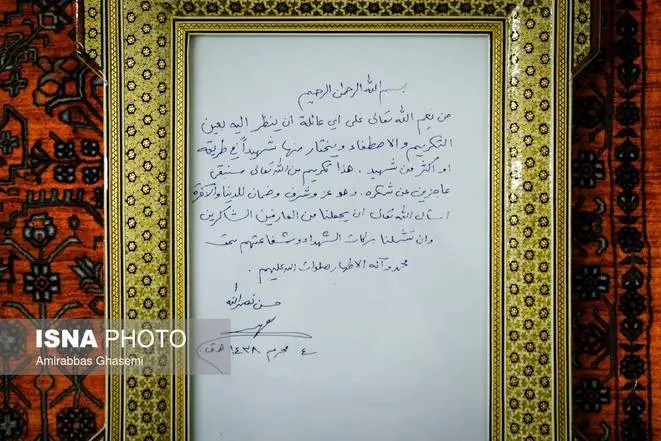 بسم الله الرحمن الرحيم
من نِعَم الله تعالى على اي عائلة ان ينظر اليه بعين
التكريم والاصطفاء ويختار منها شهيداً في طريقه
او اكثر من شهيد . هذا تكريم من الله تعالى سنبقى
عاجزين عن شكره . وهو عز وشرف وضمان للدنيا والآخرة
اسأل الله تعالى ان يجعلنا من العارفين الشاكرين
وان تشملنا بركات الشهداء وشفاعتهم بحق
محمد وآله الاطهار صلوات الله عليهم .
حسن نصرالله
٤ محرم ١٤٣٨ هـ ق
ISNA PHOTO
Amirabbas Ghasemi